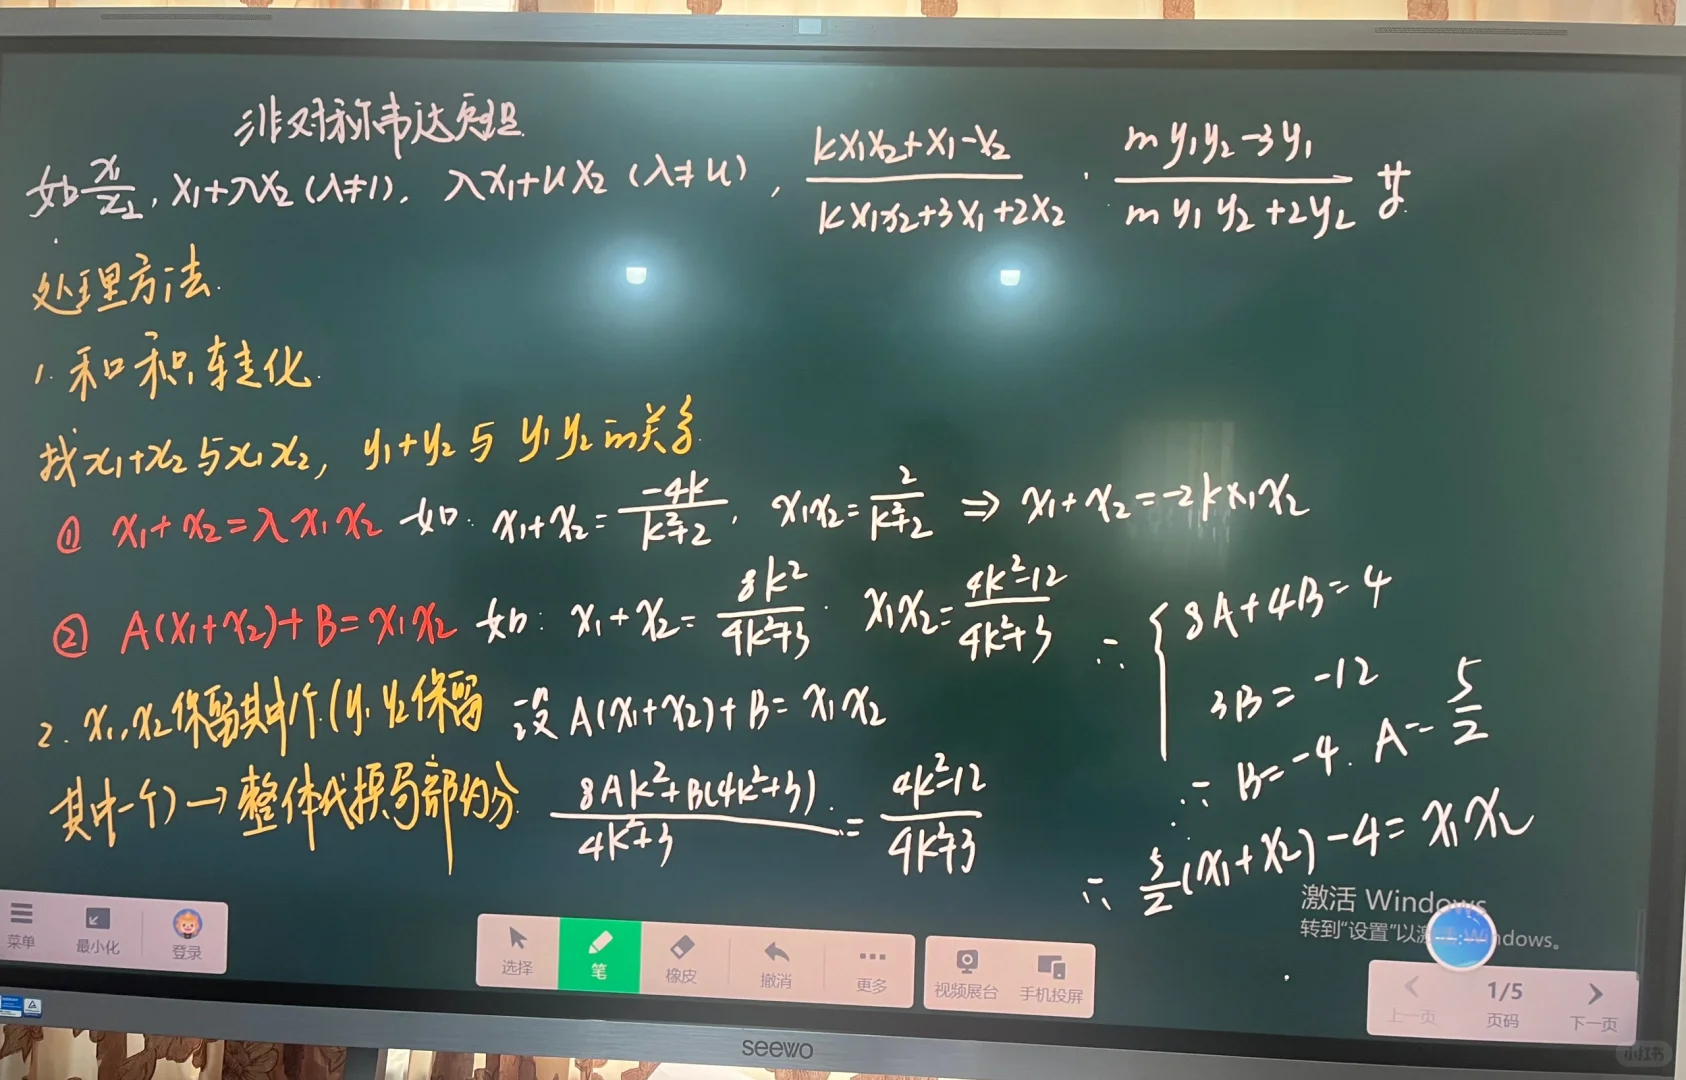 非对称韦达定理
如 x₁/x₂, x₁+λx₂ (λ≠1). λx₁+ux₂ (λ≠u), (kx₁x₂+x₁-x₂)/(kx₁x₂+3x₁+2x₂). (my₁y₂-3y₁)/(my₁y₂+2y₂) 等
处理方法.
1. 和积转化.
找x₁+x₂与x₁x₂, y₁+y₂与y₁y₂的关系
① x₁+x₂=λx₁x₂ 如: x₁+x₂=-4k/(k²+2), x₁x₂=2/(k²+2) ⇒ x₁+x₂=-2kx₁x₂
② A(x₁+x₂)+B=x₁x₂ 如: x₁+x₂=8k²/(4k²+3). x₁x₂=(4k²-12)/(4k²+3)
2. x₁,x₂保留其中1个(y₁y₂保留
其中一个)→整体代换局部约分
设 A(x₁+x₂)+B=x₁x₂
(8Ak²+B(4k²+3))/(4k²+3)=(4k²-12)/(4k²+3)
∴ {8A+4B=4
3B=-12
∴ B=-4. A=5/2
∴ 5/2(x₁+x₂)-4=x₁x₂
激活 Windows
转到"设置"以激活 Windows。
菜单
最小化
登录
选择
笔
橡皮
撤消
更多
视频展台
手机投屏
上一页
1/5
页码
下一页
seewo
小红书